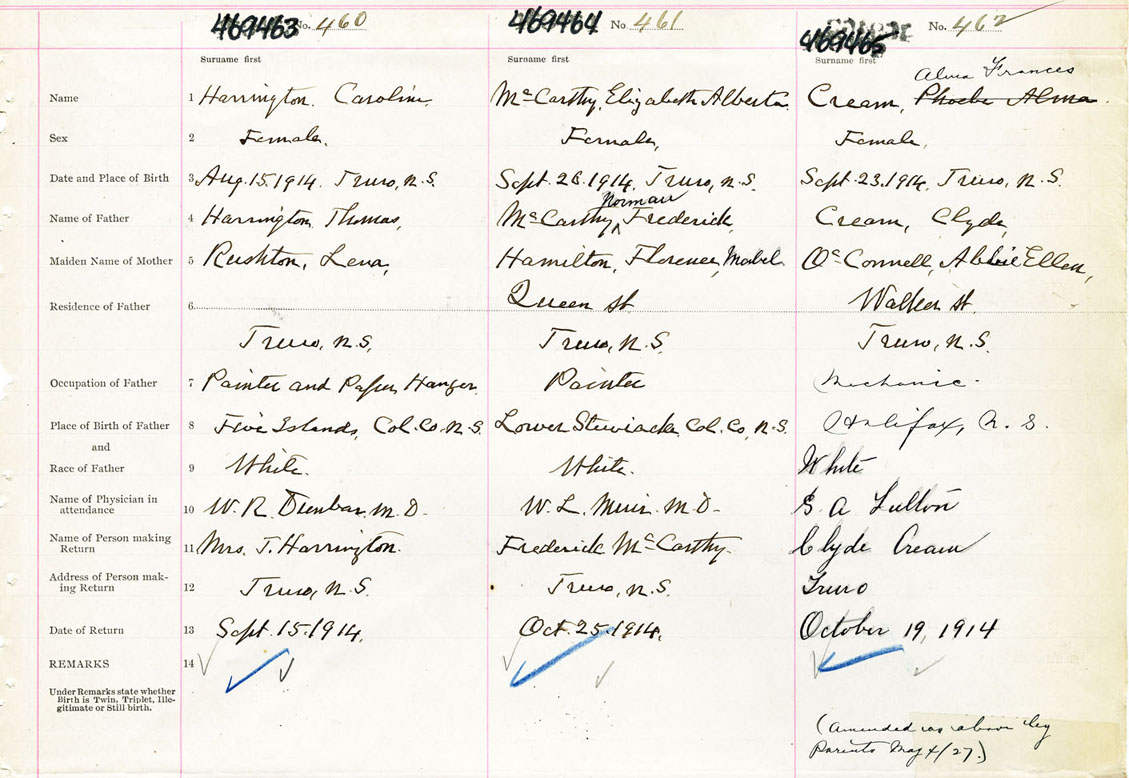 469463 No. 460 469464 No. 461 469465 No. 462
Surname first Surname first Surname first
Alma Frances
Name 1 Harrington. Caroline. McCarthy, Elizabeth Alberta. Cream, Phoebe Alma.
Sex 2 Female. Female, Female.
Date and Place of Birth 3 Aug. 15. 1914. Truro, N.S. Sept. 28. 1914. Truro, N.S. Sept. 23. 1914, Truro, N.S.
Norman
Name of Father 4 Harrington, Thomas, McCarthy, ^ Frederick, Cream, Clyde,
Maiden Name of Mother 5 Rushton, Lena, Hamilton, Florence, Mabel O'Connell, Abbie Ellen,
Residence of Father 6 Queen St. Walker St.
Truro, N.S. Truro, N.S. Truro, N.S.
Occupation of Father 7 Painter and Paper Hanger. Painter Mechanic.
Place of Birth of Father 8 Five Islands, Col. Co. N.S. Lower Stewiacke, Col. Co, N.S. Halifax, N.S.
and
Race of Father 9 White. White. White
Name of Physician in
attendance 10 W. R. Dunbar. M.D. W. L. Muir. M.D. S A Fulton
Name of Person making
Return 11 Mrs. T. Harrington. Frederick McCarthy. Clyde Cream
Address of Person mak-
ing Return 12 Truro, N.S. Truro, N.S. Truro
Date of Return 13 Sept. 15. 1914, Oct. 25. 1914. October 19, 1914
REMARKS 14
Under Remarks state whether
Birth is Twin, Triplet, Ille-
gitimate or Still birth.
(Amended as above by
Parents May 4/27.)